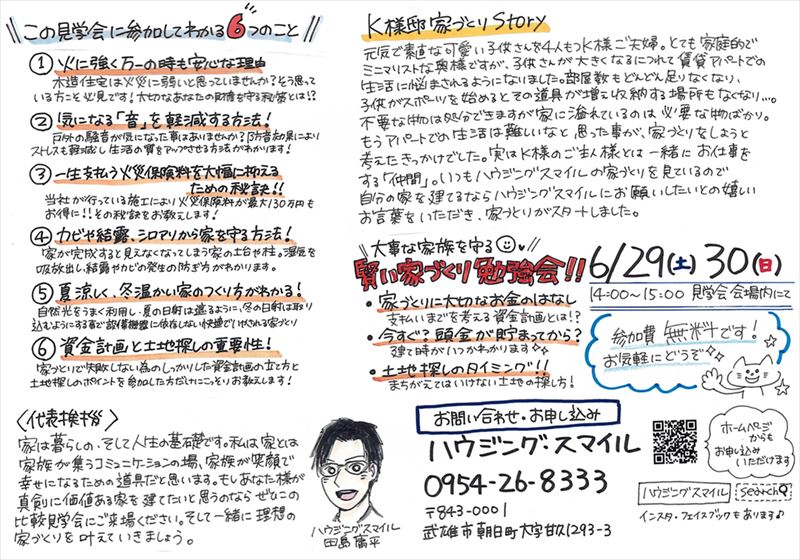 この見学会に参加してわかる6つのこと
① 火に強く万一の時も安心な理由
木造住宅は火災に弱いと思っていませんか?そう思って
いる方こと必見です!大切なあなたの財産を守る秘密とは!?
② 気になる「音」を軽減する方法!
戸外の騒音が気になった事はありませんか?防音効果により
ストレスも軽減し生活の質をアップさせる方法がわかります!
③ 一生支払う火災保険料を大幅に抑える
ための秘訣!!
当社が行っている施工により火災保険料が最大130万円も
お得に!!その秘訣をお教えします!
④ カビや結露、シロアリから家を守る方法!
家が完成すると見えなくなってしまう家の土台や柱。湿気を
吸放出し、結露やカビの発生の防ぎ方がわかります。
⑤ 夏涼しく、冬温かい家のつくり方がわかる!
自然光をうまく利用し、夏の日射は遮るように、冬の日射は取り
込むようにする事で設備機器に依存しない快適で
⑥ 資金計画と土地探しの重要性!
家づくりで失敗しない為のしっかりした資金計画の立て方と
土地探しのポイントを参加した方だけにこっそりお教えします!
〈代表挨拶〉
家は暮らしの、そして人生の基礎です。私は家とは
家族が集うコミュニケーションの場、家族が笑顔で
幸せになるための道具だと思います。もしあなた様が
真剣に価値ある家を建てたいと思うのなら ぜひこの
比較見学会にご来場ください。そして一緒に理想の
家づくりを叶えていきましょう。
ハウジングスマイル
田島
K様邸 家づくり Story
元気で素直な可愛い子供さんを4人もつK様ご夫婦。とても家庭的で
ミニマリストな奥様ですが、子供さんが大きくなるにつれて賃貸アパートでの
生活に悩まされるようになりました。部屋数もどんどん足りなくなり、
子供がスポーツを始めるとその道具が増え収納する場所もなくなり…。
不要な物は処分できますが家に溢れているのは必要な物ばかり。
もうアパートでの生活は難しいなと思った事が、家づくりをしようと
考えたきっかけでした。実はK様のご主人様とは一緒にお仕事を
する「仲間」。いつもハウジングスマイルの家づくりを見ているので
自分の家を建てるならハウジングスマイルにお願いしたいとの嬉しい
お言葉をいただき、家づくりがスタートしました。
大事な家族を守る
賢い家づくり勉強会!!
6/29(土) 30(日)
14:00~15:00 見学会会場内にて
・家づくりに大切なお金のはなし
支払いまでを考える資金計画とは!?
・今すぐ?頭金が貯まってから?
建て時がいつかわかります
・土地探しのタイミング!!
まちがえてはいけない土地の探し方!
参加費 無料です!
お気軽にどうぞ
お問い合わせ・お申し込み
ハウジング・スマイル
0954-26-8333
〒843-0001
武雄市朝日町大字甘久1293-3
ホームページ
からも
お申し込み
いただけます
ハウジングスマイル
search
インスタ・フェイスブックもあります♪